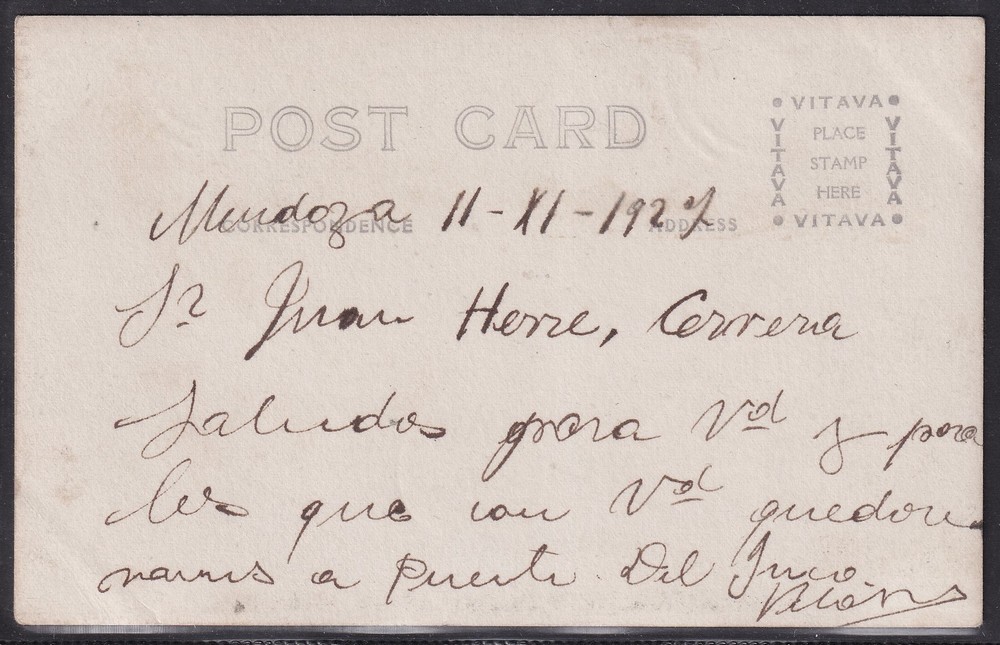 POST CARD
VITAVA
VITAVA
PLACE
STAMP
HERE
VITAVA
VITAVA
CORRESPONDENCE
ADDRESS
Mendoza 11-XI-1927
Sr Juan Herre, Correra
Saludos para Vd y para
los que con Vd quedaron
vamos a Puente Del Inca